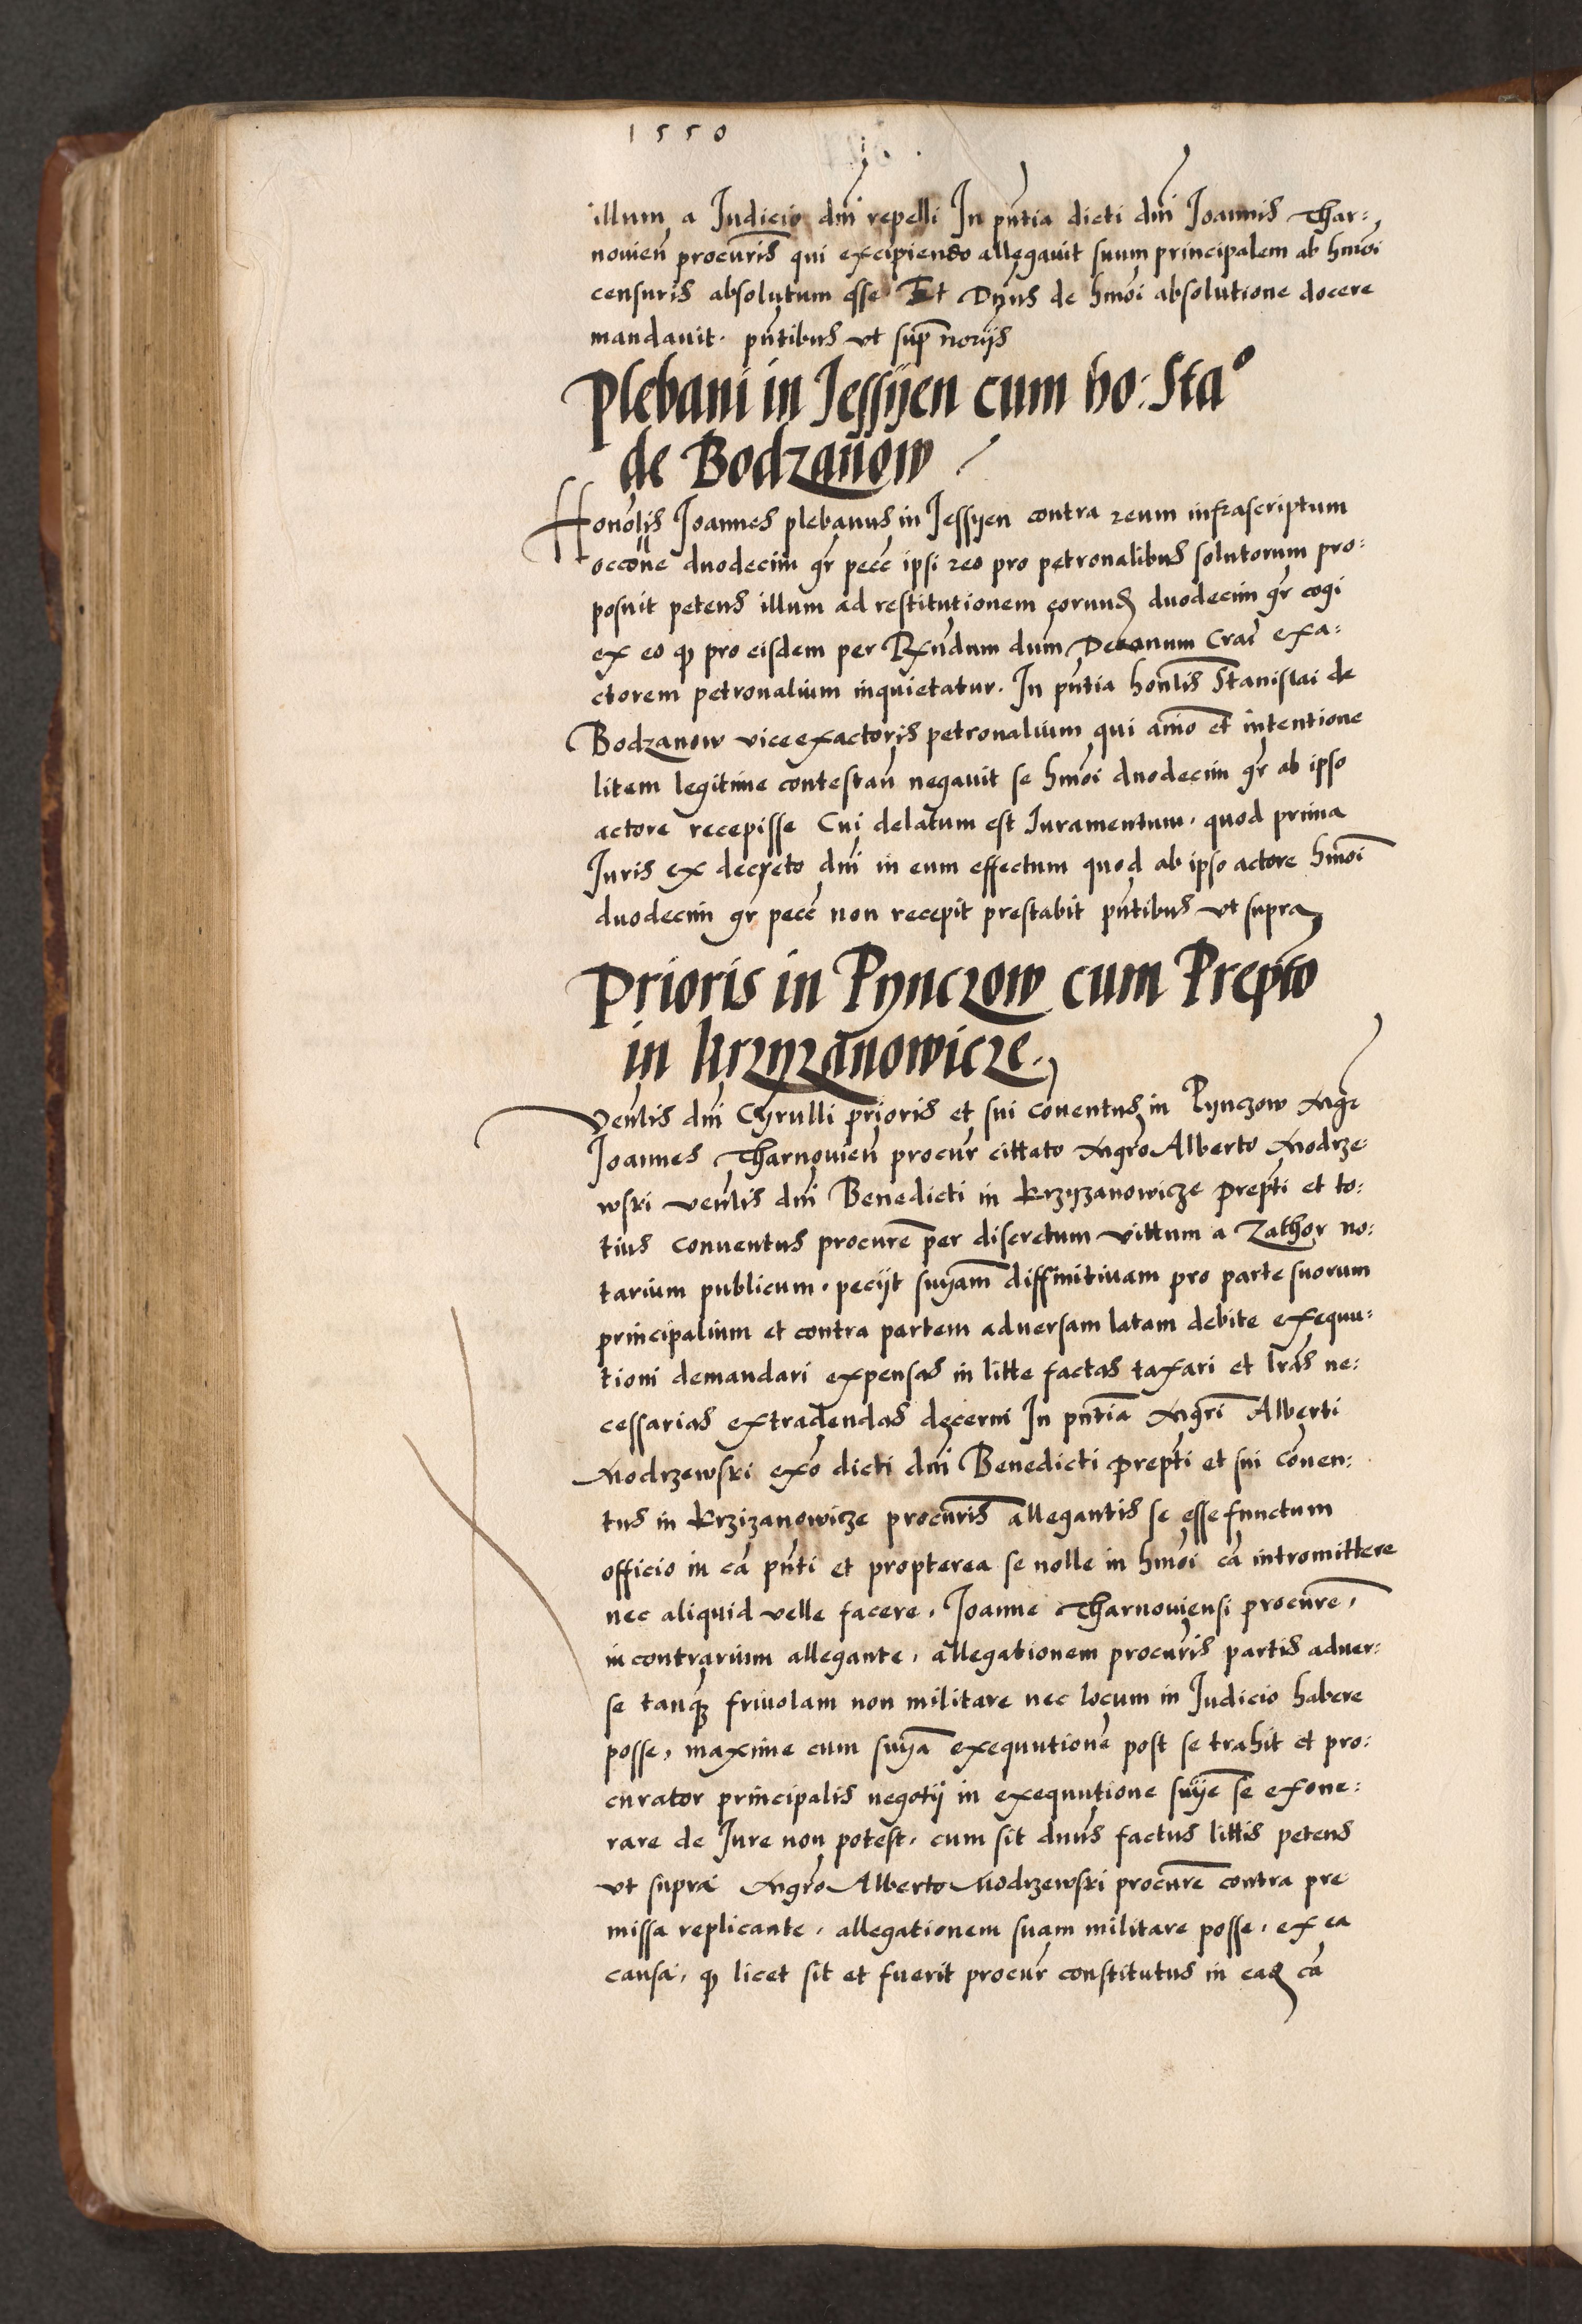 1550
illum a Judicio dni repelli In pntia dicti dni Joannis Thar=
novien procuris qui excipiendo allegavit suum principalem ab hmoi
censuris absolutum esse Et Dnus de hmoi absolutione docere
mandavit. pntibus vt sup norijs
Plebani in Jessyen cum ho: Sta°
de Bodzanow
Honolis Joannes plebanus in Jessyen contra reum infrascriptum
occone duodecim gr pecc ipsi reo pro petronalibus solutorum pro=
posuit petens illum ad restitutionem eorund duodecim gr cogi
ex eo q pro eisdem per Rxndum dum Decanum Crac exa=
ctorem petronalium inquietatur. In pntia honlis Stanislai de
Bodzanow viceexactoris petronalium qui aнio et intentione
litem legitime contestan negavit se hmoi duodecim gr ab ipso
actore recepisse Cui delatum est Juramentum. quod prima
Juris ex decreto dni in eum effectum quod ab ipso actore hmoi
duodecim gr pecc non recepit prestabit pntibus vt supra
Prioris in Pynczow cum Prepto
in Krzyzanowicze.
Venlis dni Cyrulli prioris et sui conventus in Pynczow Mgr
Joannes Tharnovien procur cittato Mgro Alberto Modrze=
wski venlis dni Benedicti in Krzyzanowicze prepti et to=
tius conventus procure per discretum vittum a Zathor no=
tarium publicum. pecijt snyam diffinitivam pro parte suorum
principalium et contra partem adversam latam debite exequu=
tioni demandari expensas in litte factas taxari et lras ne=
cessarias extradendas decerni In pntia Mgri Alberti
Modrzewski exo dicti dni Benedicti prepti et sui conven=
tus in Krzizanowicze procuris allegantis se esse functum
officio in ca pnti et propterea se nolle in hmoi ca intromittere
nec aliquid velle facere, Joanne Tharnoviensi procure,
in contrarium allegante, allegationem procuris partis adver=
se tanq frivolam non militare nec locum in Judicio habere
posse, maxime cum snya exequutione post se trahit et pro=
curator principalis negotij in exequutione snye se exone=
rare de Jure non potest, cum sit dnus factus littis petens
vt supra Mgro Alberto Modrzewski procure contra pre
missa replicante, allegationem suam militare posse, ex ea
causa, q licet sit et fuerit procur constitutus in ead ca